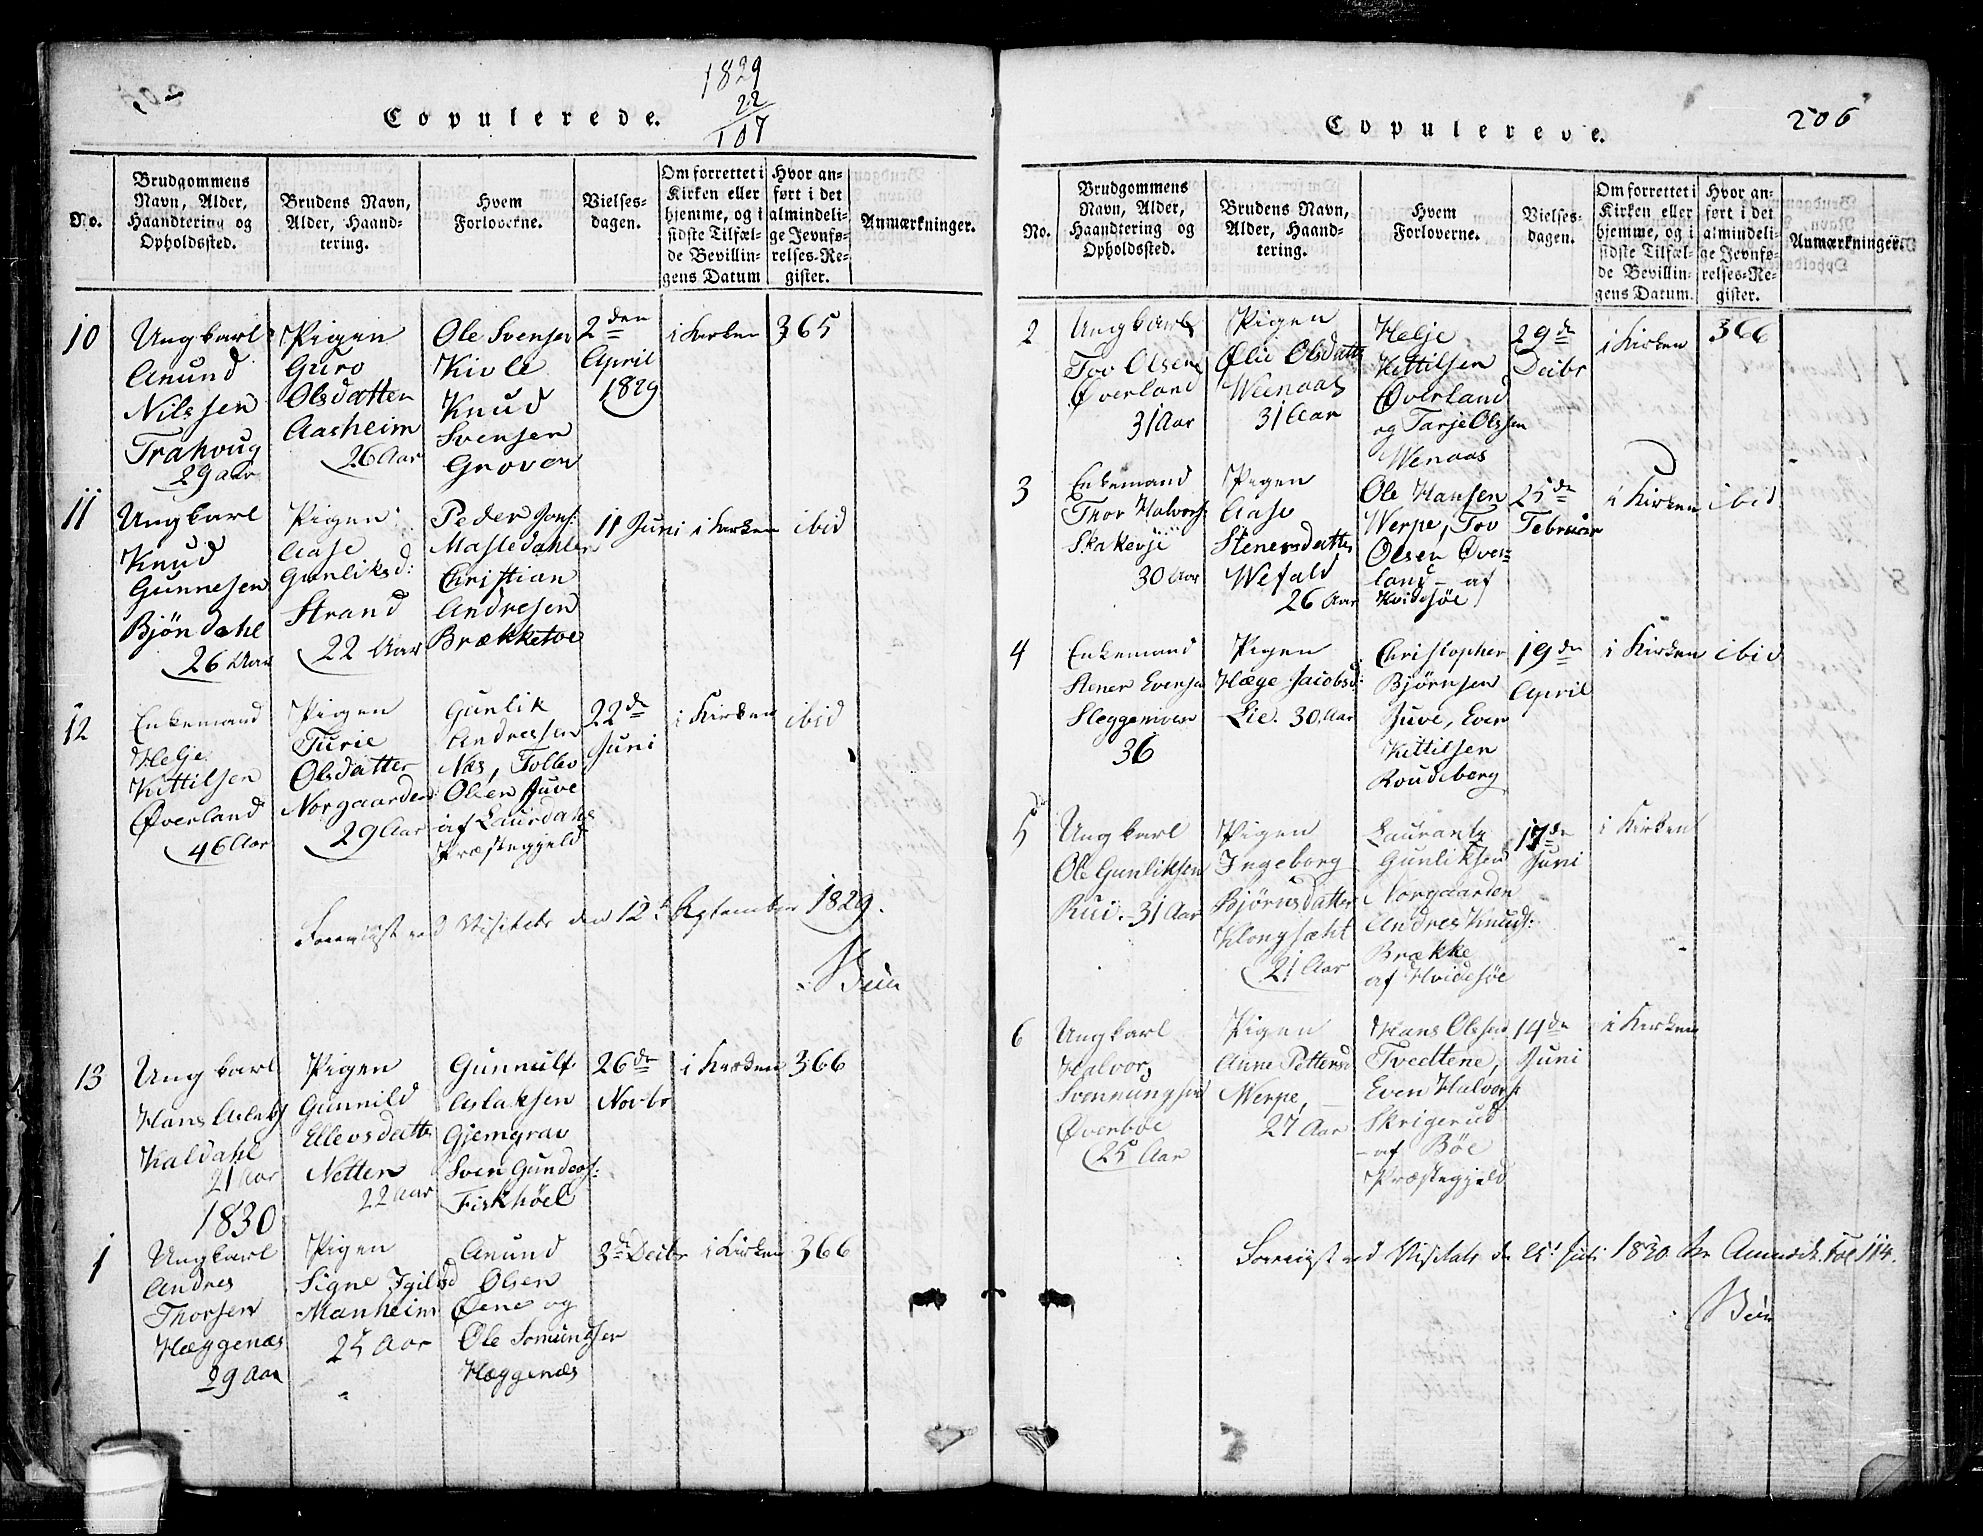 1829
22
107
Copulerede.
No.
Brudgommens Navn, Alder, Haandtering og Opholdssted.
Brudens Navn, Alder, Haandtering.
Hvem Forloverne.
Vielsesdagen.
Om forrettet i Kirken eller hjemme, og i sidste Tilfælde Bevillingens Datum
Hvor anført i det almindelige Jevnførelses-Register.
Anmærkninger.
10
Ungkarl
Anund
Nilssen
Trahvug
29 aar
Pigen
Guro
Olsdatten
Aasheim
26 Aar
Ole Svensen
Kivle
Knud
Svensen
Groven
2den
April
1829
i Kirken
365
11
Ungkarl
Knud
Gunnesen
Bjöndahl
26 Aar
Pigen
Aase
Gunliksd:
Strand
22 Aar
Peder Jons:
Masledahlen
Christian
Andresen
Brækketoe
11 Juni
i Kirken
ibid
12
Enkemand
Helje
Kittilsen
Øverland
46 Aar
Pigen
Turie
Olsdatter
Norgaarden
29 Aar
Gunlik
Andresen
Nes, Tollev
Olsen Juve
af Laurdahls
Præstegjeld
22de
Juni
i Kirken
ibid
Foreviist ved Visitats den 12te September 1829.
13
Ungkarl
Hans Aslaks
Kaldahl
21 Aar
Pigen
Gunnild
Ellevsdatte
Netten
22 Aar
Gunnulf
Aslaksen
Gjemgrav
Sven Gunders:
Fiskhöel
26de
Novbr
i Kirken
366
1830
1
Ungkarl
Andres
Thorsen
Hæggenæs
29 Aar
Pigen
Signe Igilsd
Manheim
25 Aar
Anund
Olsen
Øene og
Ole Somundsen
Hæggenæs
3de Decbr
i Kirken
366
206
Copulerede.
No.
Brudgommens Navn, Alder, Haandtering og Opholdssted.
Brudens Navn, Alder, Haandtering.
Hvem Forloverne.
Vielsesdagen.
Om forrettet i Kirken eller hjemme, og i sidste Tilfælde Bevillingens Datum.
Hvor anført i det almindelige Jevnførelses-Register.
Anmærkninger.
2
Ungkarl
Tov Olsen
Øverland
31 Aar
Pigen
Ølie Olsdatte
Weenaas
31 Aar
Helje
Kittilsen
Øverland
og Tarje Olssen
Wenaas
29de
Decbr
i Kirken
366
3
Enkemand
Thor Halvors:
Skakevje
30 Aar
Pigen
Aase
Stenersdatter
Wefald
26 Aar
Ole Hansen
Werpe, Tov
Olsen Øver-
land - af
Hvidesøe
25de
Februar
i Kirken
ibid
4
Enkemand
Stener Evensen
Sleggeniven
36
Pigen
Hæge Jacobsd:
Lie. 30 Aar
Christopher
Bjørnsen
Juve, Even
Kittilsen
Roudeberg
19de
April
i Kirken
ibid
5
Ungkarl
Ole Gunliksen
Rui. 31 Aar
Pigen
Ingeborg
Bjørnsdatter
Klongsæht
21 Aar
Laurants
Gunliksen
Norgaarden
Andres Knuds:
Brække
af Hvidesøe
17de
Juni
i Kirken
6
Ungkarl
Halvor
Svennungsen
Øverboe
25 Aar
Pigen
Anne Pettersd
Werpe,
27 Aar
Hans Olsen
Tvedtene,
Even Halvors:
Skrigerud
- af Bøe
Præstegjeld
14de
Juni
i Kirken
Foreviist ved Visitats den 25de Juli 1830. Fol 114.